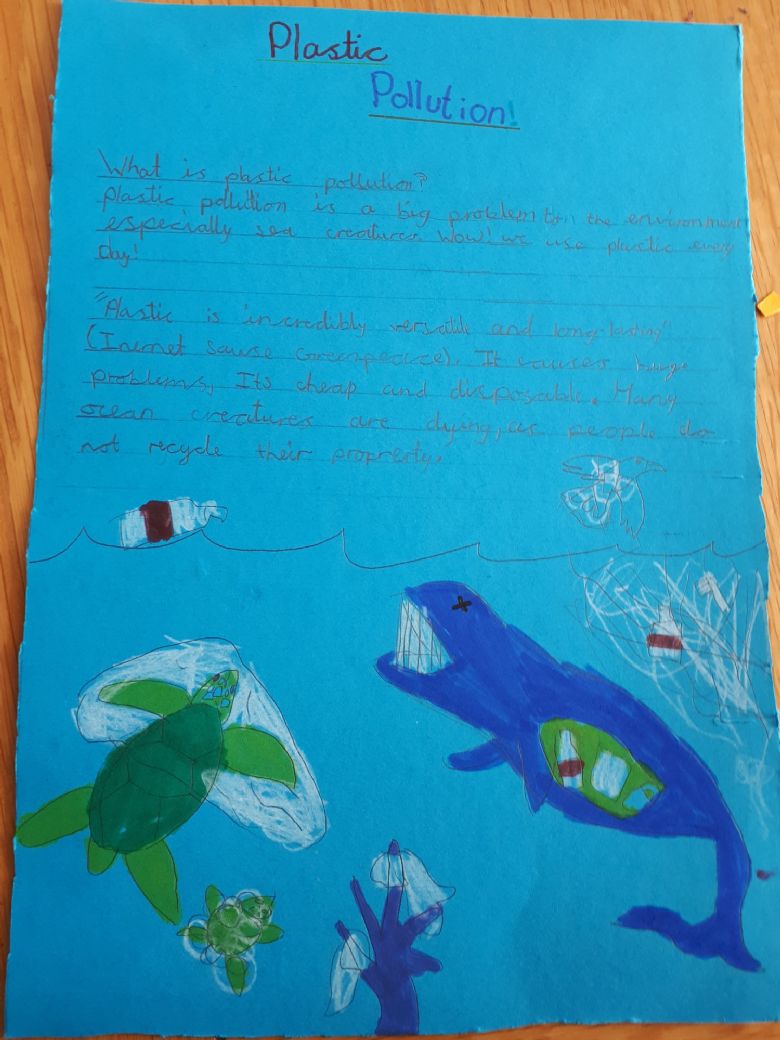 Plastic
Pollution!
What is plastic pollution?
Plastic pollution is a big problem the environment
especially sea creatures. Wow! we use plastic every
day!
"Plastic is incredibly versatile and long-lasting"
(Inernet sause Greenpeace). It causes huge
problems, Its cheap and disposable. Many
ocean creatures are dying, as people do
not recycle their proprerty.